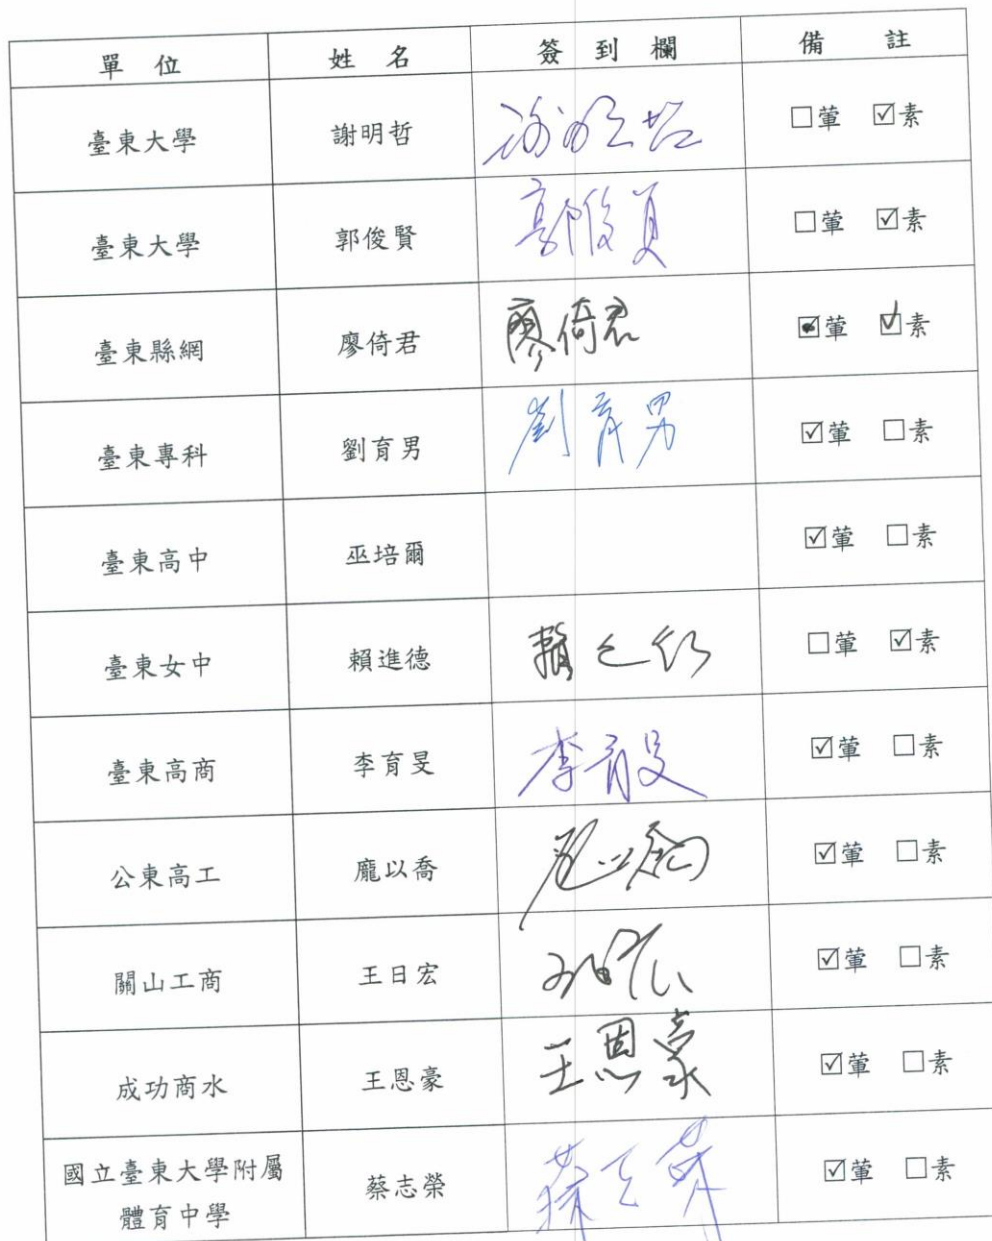 單位 姓名 簽到欄 備註
臺東大學 謝明哲 謝明哲 □葷 ☑素
臺東大學 郭俊賢 郭俊賢 □葷 ☑素
臺東縣網 廖倚君 廖倚君 ☑葷 ☑素
臺東專科 劉育男 劉育男 ☑葷 □素
臺東高中 巫培爾 ☑葷 □素
臺東女中 賴進德 □葷 ☑素
臺東高商 李育旻 李育旻 ☑葷 □素
公東高工 龐以喬 ☑葷 □素
關山工商 王日宏 ☑葷 □素
成功商水 王恩豪 王恩豪 ☑葷 □素
國立臺東大學附屬
體育中學 蔡志榮 蔡志榮 ☑葷 □素